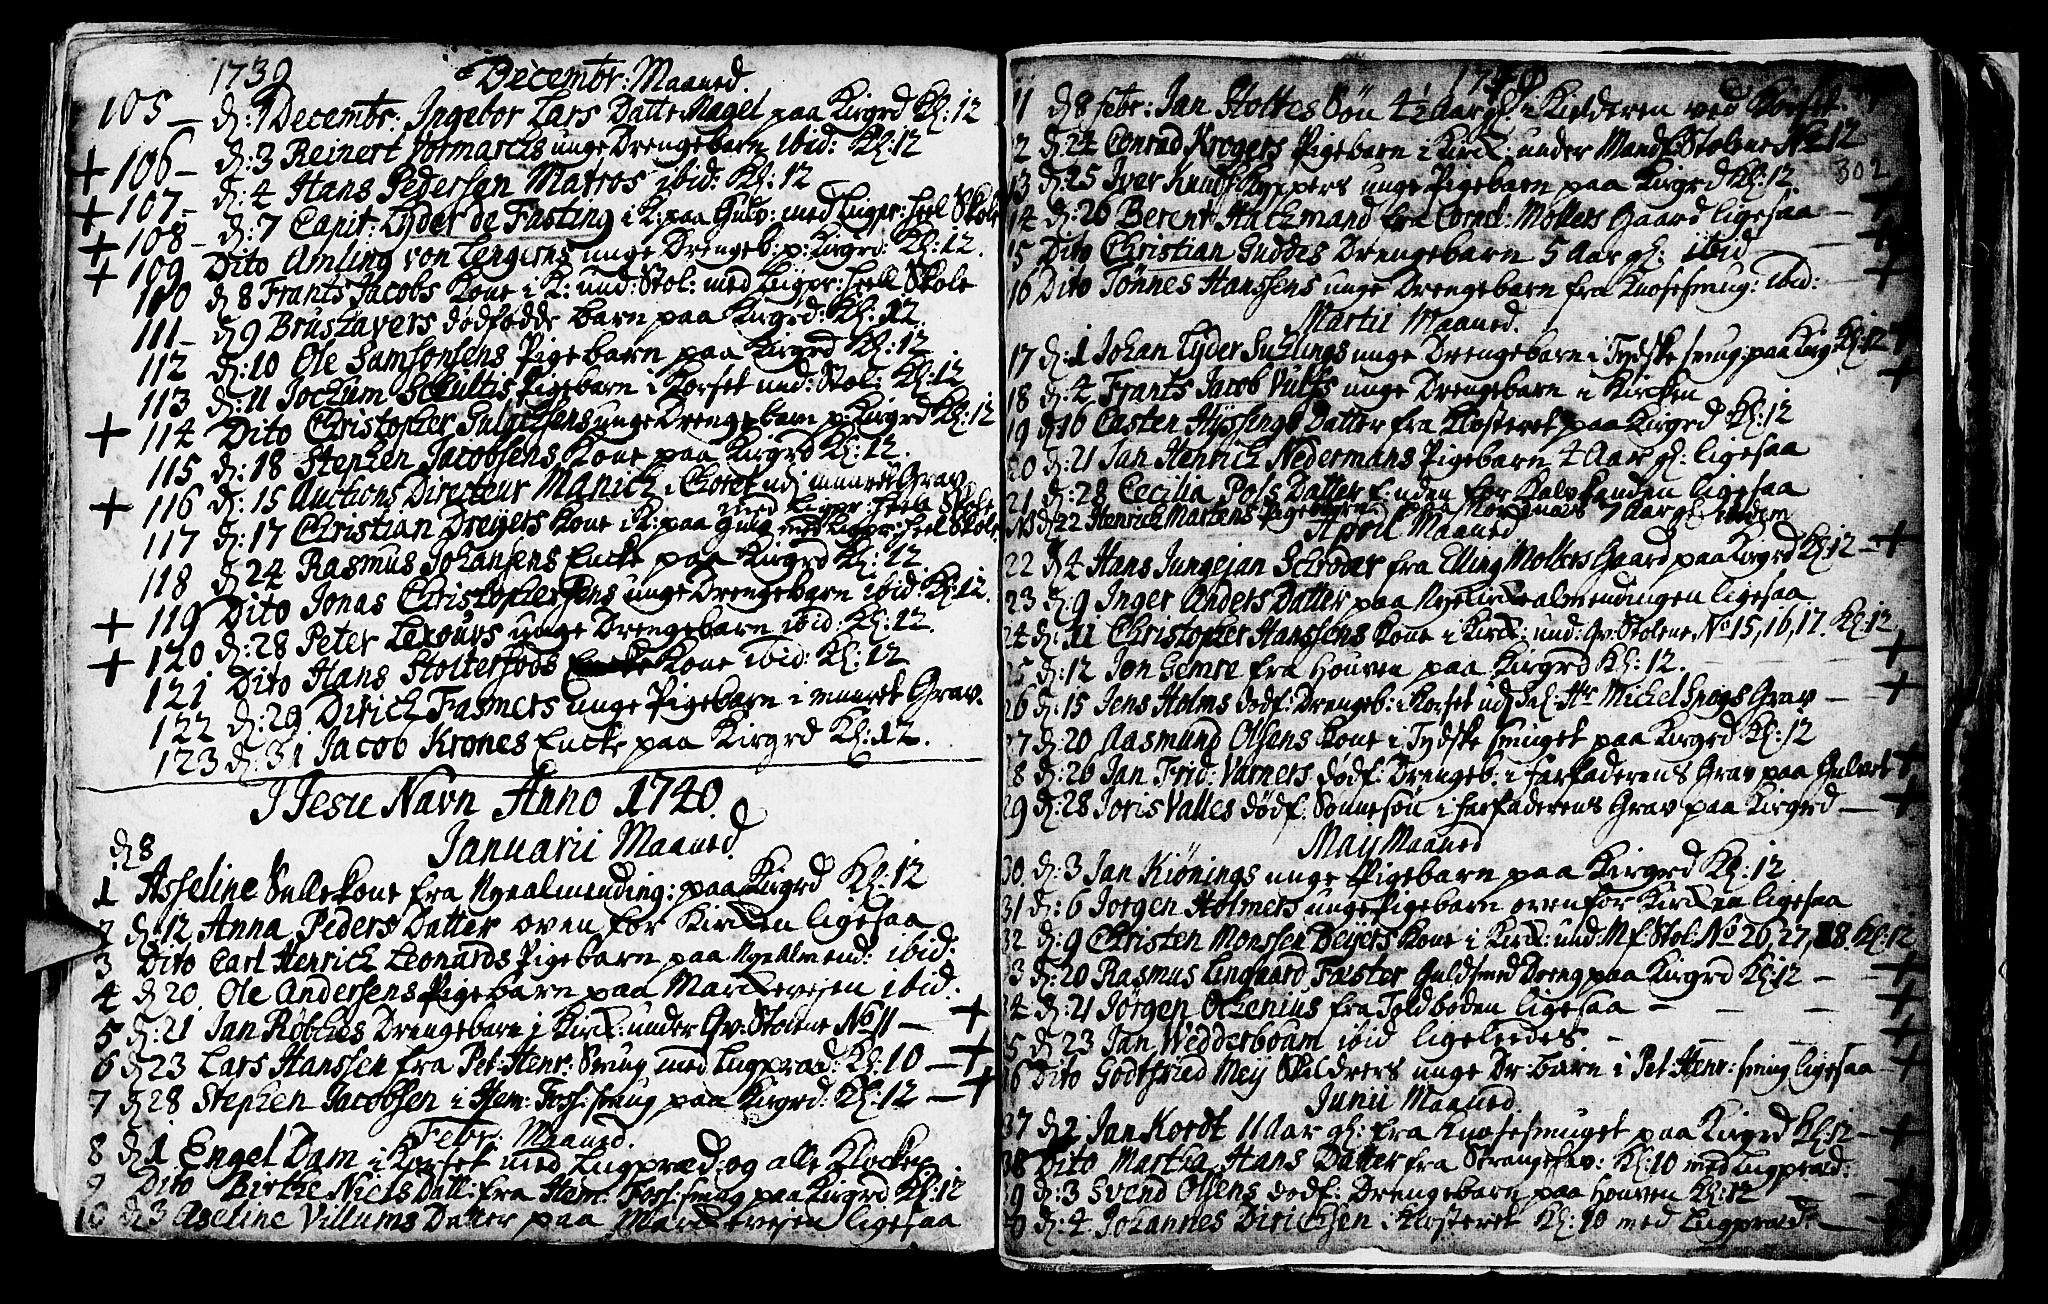 1739
Decembr: Maaned.
105 — d: 1 Decembr: Ingebor Lars Datter Nagel paa Kirgrd Kl: 12
+ 106 — d: 3 Reinert Vormarchs unge Drengebarn ibid: Kl: 12
+ 107 — d: 4 Hans Pedersen Matros ibid: Kl: 12
+ 108 — d: 7 Capit: Lyder de Fasting i K: paa Gulv: med Liigpr: heel Skole
+ 109 Dito Amling von Lengerns unge Drengeb: p: Kirgrd: Kl: 12.
110 d 8 Frants Jacobs Kone i K: und: Stol: med Liigpr: heel Skole
111 — d 9 Brustavers dödfödde barn paa Kirgrd: Kl: 12.
112 d: 10 Ole Samsonsens Pigebarn paa Kirgrd Kl: 12
113 d: 11 Jochum Schultis Pigebarn i Korset und: Stol: Kl: 12
+ 114 Dito Christopher unge Drengebarn p: Kirgrd Kl: 12
115 d: 18 Stephen Jacobsens Kone paa Kirgrd Kl: 12.
+ 116 d: 15 Auctions Directeur Manich i Choret udj muuret Grav
med Ligpr: heele Skole
117 d: 17 Christian Dreyers Kone i K: paa Gulv med Ligpr: heel Skole
118 d 24 Rasmus Johansens Encke paa Kirgrd Kl: 12
119 Dito Jonas Christophersens unge Drengebarn ibid: Kl: 12.
+ 120 d: 28 Peter Lexours unge Drengebarn ibid: Kl: 12.
+ 121 Dito Hans Stoltersfods Kone ibid: Kl: 12
122 d: 29 Dirich Fasmers unge Pigebarn i muuret Grav.
123 d: 31 Jacob Krones Encke paa Kirgrd Kl: 12.
I Jesu Navn Anno 1740.
Januarii Maaned.
d 8
1 Asseline fra Nyealmending: paa Kirgrd Kl: 12
2 d 12 Anna Peders Datter oven for Kircken ligesaa
3 Dito Carl Henrich Leonards Pigebarn paa Nyealmend: ibid:
4 d 20. Ole Andersens Pigebarn paa Marckevejen ibid:
5 d: 21 Jan Röbckes Drengebarn i Kirck: under Qv: Stolene No 11 — +
6 d 23 Lars Hanssen fra Pet: Henr: Smug med Liigpræd: Kl: 10 — +
7 d 28 Stephen Jacobsen i smug paa Kirgrd: Kl: 12 — +
Febr: Maaned.
8 d 1 Engel Dam i Korset med Liigpræd: og alle Klocker
9 Dito Birthe Niels Datt: fra smug paa Kirgrd Kl: 12
10 d 3 Aseline Villums Datter paa Marckevejen ligesaa
1740
11 d 8 Febr: Jan Holtes Sön 4½ Aar gl: i Kielderen ved Korset.
12 d: 24 Conrad Krogers Pigebarn i Kirck: under Mandf: Stolene No 12
302
13 d: 25 Iver Knudss unge Pigebarn paa Kirgrd Kl: 12.
14 d: 26 Berent Hachmand fra Cornel: Mollers Gaard ligesaa — +
15 Dito Christian Guddes Drengebarn 5 Aar gl: ibid — +
16 Dito Tönnes Hanssens unge Drengebarn fra Knosesmug: ibid: — +
Martii Maaned.
17 d: 1 Johan Lyder Suhlings unge Drengebarn i Tydske smug: paa Kirg: Kl: 12 +
18 d: 4 Frants Jacob Vulfs unge Drengebarn i Kircken +
19 d 16 Casten Hyssings Datter fra Klosteret paa Kirgrd Kl: 12
20 d: 21 Jan Henrich Nedermans Pigebarn 4 Aar gl: ligesaa
21 d: 28 Cecilia Pofs Datter uden for Kalvskanden ligesaa
NB d 22 Henrich Martens Pigebarn paa 7 Aar gl:
April Maaned
22 d 4 Hans Jungejan Schröder fra Elling Mollers Gaard paa Kirgrd Kl: 12 — +
23 d: 9 Inger Anders Datter paa Nyekirckealmendingen ligesaa
24 d: 11 Christopher Hanssens Kone i Kirck: und: Qv: Stolene No 15, 16, 17. Kl: 12
25 d: 12 Jon Gemre fra Houven paa Kirgrd Kl: 12. — — — +
26 d: 15 Jens Holms dödf: Drengeb: i Korset udj Sal: Hr Michel Grav — +
27 d: 20 Aasmund Olsens Kone i Tydske smuget paa Kirgrd Kl: 12
28 d: 26 Jan Frid: Varners dödf: Drengeb: i Farfaderens Grav paa Gulvet +
29 d: 28 Joris Valles dödf: Sonnesön i Farfaderens Grav paa Kirgrd — +
May Maaned
30 d: 3 Jan Kiönings unge Pigebarn paa Kirgrd Kl: 12.
31 d: 6 Jorgen Holmers unge Pigebarn oven for Kircken ligesaa
32 d: 9 Christen Monssen Beyers Kone i Kirck: und: Mf Stol: No 26, 27, 28. Kl: 12
33 d: 20 Rasmus Lingaard Faster Guldsmed Dreng paa Kirgrd Kl: 12 — +
34 d: 21 Jörgen Olzenius fra Toldboden ligesaa — — — +
35 d 23 Jan Wedderboum ibid ligeleedes. — — — +
36 Dito Godtfried Mey Skildrers unge Dr: barn i Pet Henr: smug ligesaa — +
Junii Maaned
37 d 2 Jan Kordt 11 Aar gl: fra Knosesmuget paa Kirgrd Kl: 12 — +
38 Dito Martha Hans Datter fra Strangehav: Kl: 10 med Liigpræd:
39 d: 3 Svend Olsens dödf: Drengebarn paa Houven Kl: 12 — +
40 d: 4 Johannes Dirichsen i Klosteret Kl: 10 med Liigpræd: — +